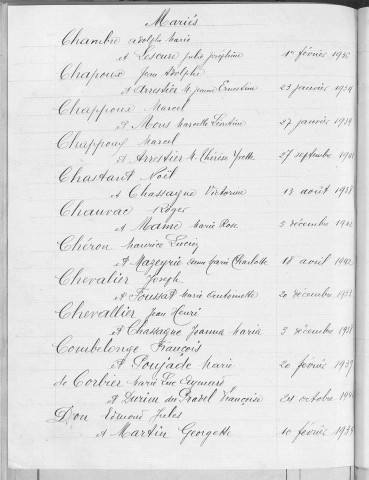 Mariés
Chambre Adolphe Marie
et Lescure Julie Joséphine 1er février 1936
Chapoux Jean Adolphe
et Arrestier M. Jeanne Ernestine 23 janvier 1934
Chappoux Marcel
et Mons Marcelle 27 janvier 1934
Chappoux Marcel
et Arrestier M. Thérèse Yvette 27 septembre
Chastant Noël
et Chassagne Victorine 13 août 1938
Chauvac Roger
et Mame Marie Rose 5 décembre 1942
Chéron Maurice Lucien
et Mazeyrie Marie Charlotte 18 août 1942
Chevalier Joseph
et Foussat Marie Antoinette 20 décembre
Chevallier Jean Henri
et Chassagne Jeanne Maria 3 décembre 1938
Combelonge François
et Poujade Marie 20 février 1939
de Corbier Marie Luc Aymard
et Durieu du Pradel Françoise 24 octobre
Don Edmond Jules
et Martin Georgette 10 février 1934